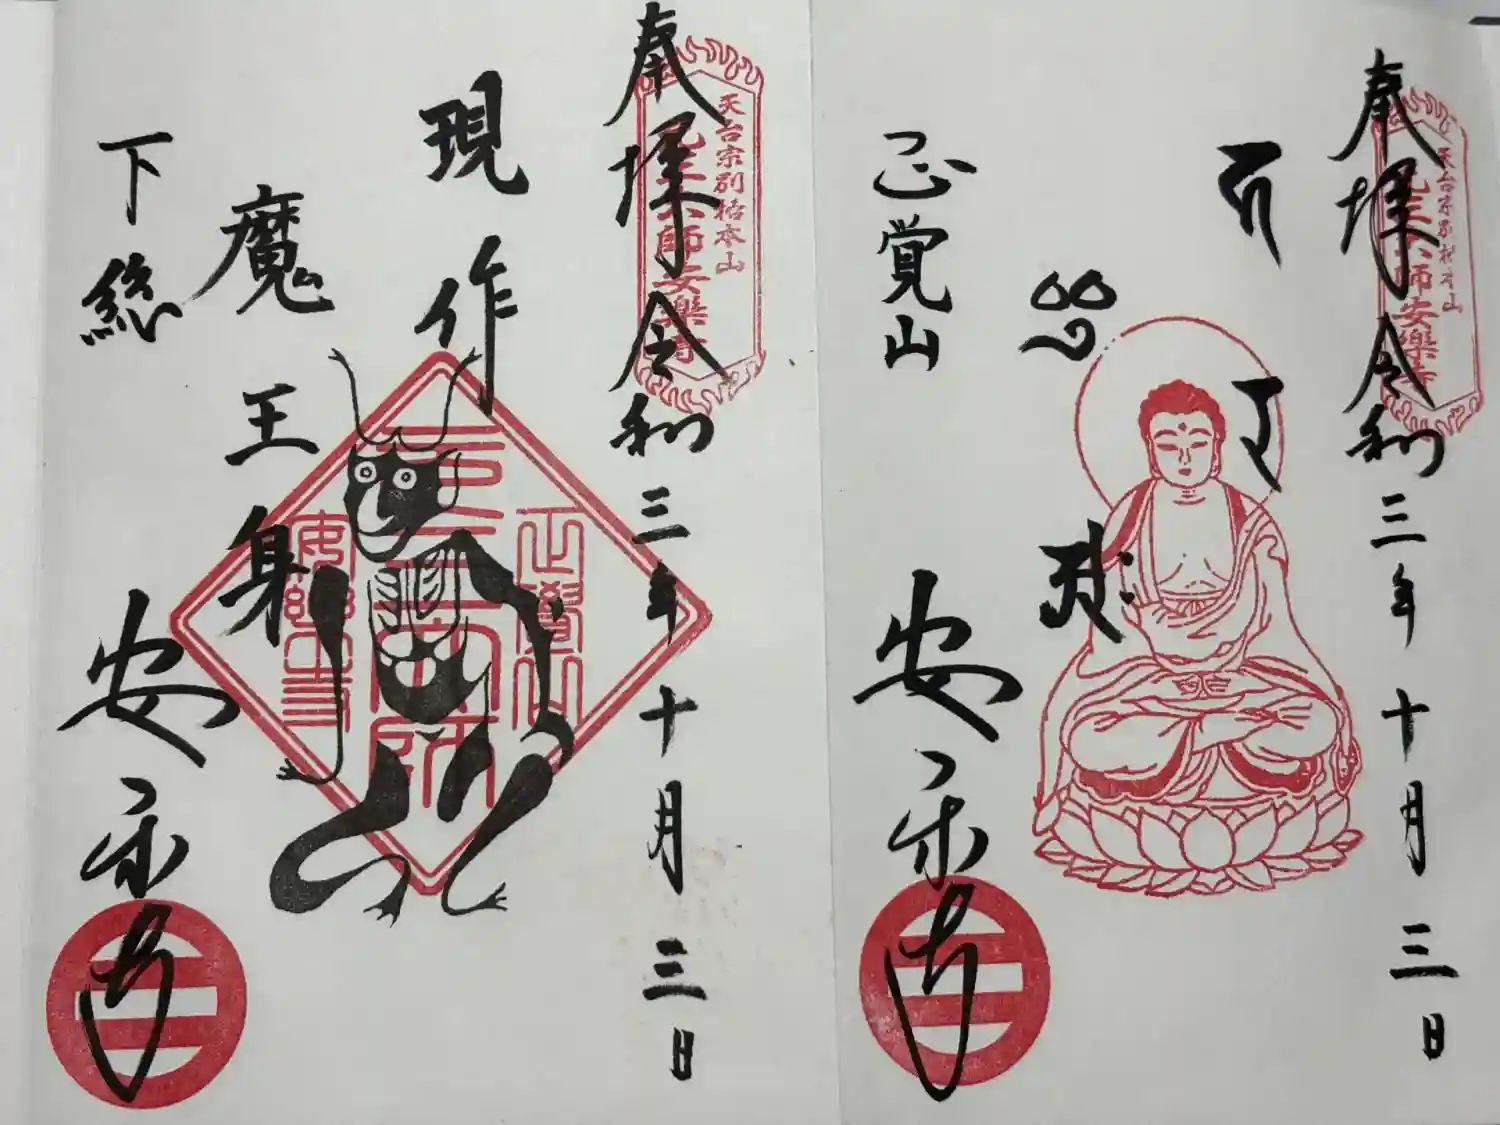 奉拝 令和三年十月三日
天台宗別格本山
元三大師安樂寺
現作
魔王身
下総
安楽寺
元三大師
正覺山
安樂寺
奉拝 令和三年十月三日
天台宗別格本山
元三大師安樂寺
正覚山
安楽寺